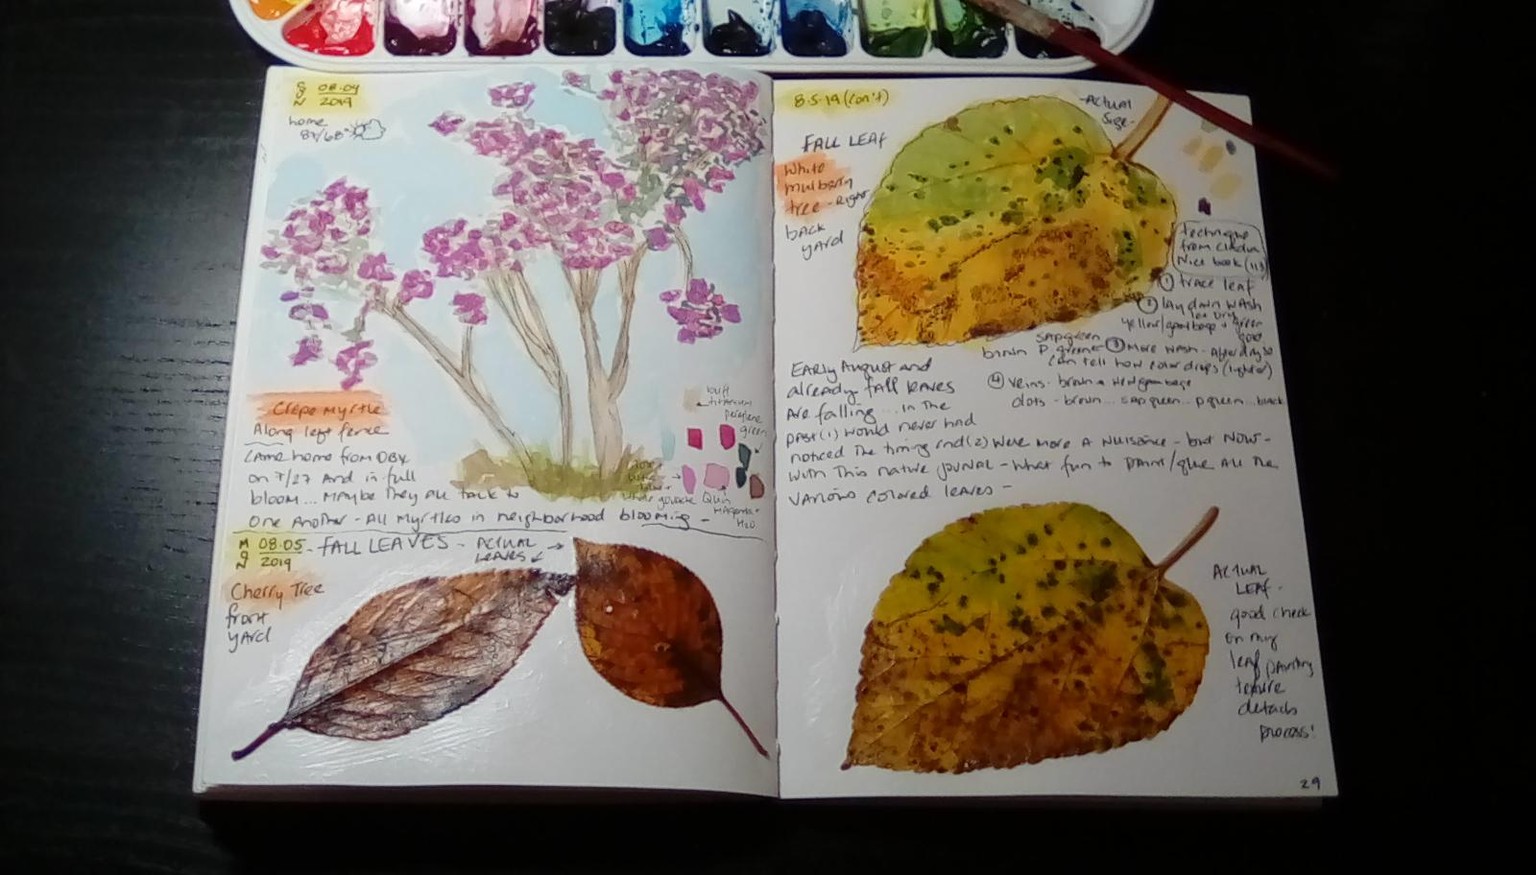 S 08.04
U
N 2019
home
87/68°
Crepe Myrtle
Along left fence
Came home from OBX
on 7/27 and in full
bloom... Maybe they all talk to
one another - All Myrtles in neighborhood blooming -
buff
titanium
perylene
green
white gouache Quin
magenta +
H2O
M 08.05
O
N 2019
- FALL LEAVES - ACTUAL
LEAVES
Cherry Tree
front
yard
8.5.19 (con't)
FALL LEAF
White
mulberry
tree - Right
back
yard
- Actual
Size -
technique
from
Nice book (113)
① trace leaf
② lay down wash
let dry
yellow/gamboge + green
gold
sap green
brown P. green
③ More wash - After dry so
can tell how color drys (lighter)
④ veins - brown + New gamboge
dots - brown... sap green... p green... black
Early August and
already fall leaves
are falling... in the
past (1) would never had
noticed the timing and (2) were more a nuisance - but NOW -
with this nature journal - what fun to paint/glue all the
various colored leaves -
ACTUAL
LEAF -
good check
on my
leaf painting
texture
details
process!
29